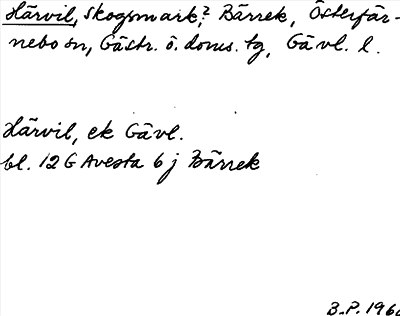 Härvil, skogsmark,? Bärrek, Österfär-
nebo sn, Gästr. ö. doms. tg, Gävl. l.
Härvil, ek Gävl.
bl. 12 G Avesta 6 j Bärrek
B.P. 1960